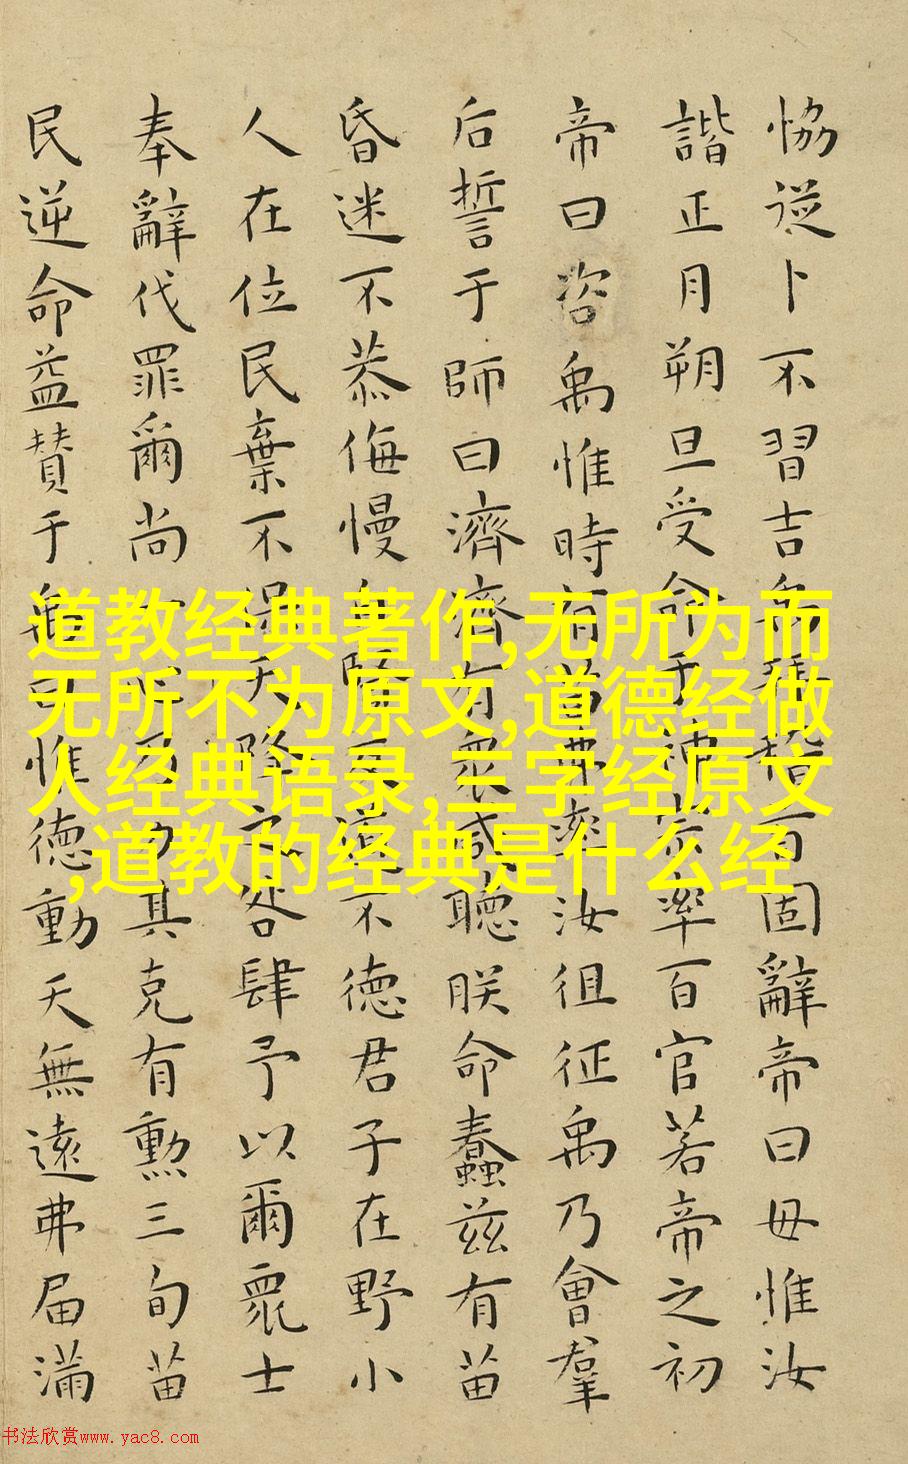 恊從卜不習吉禹拜稽首固辭帝曰毋惟汝
諧正月朔旦受命于神宗率百官若帝之初
帝曰咨禹惟時有苗弗率汝徂征禹乃會羣
后誓于師曰濟濟有衆咸聽朕命蠢茲有苗
昏迷不恭侮慢自賢反道不德君子在野小
人在位民棄不保天降之咎肆予以爾衆士
奉辭伐罪爾尚一心乃力其克有勲三旬苗
民逆命益贊于禹曰惟德動天無遠弗届滿
道教经典著作,无所为而
无所不为原文,道德经做
人经典语录,三字经原文
,道教的经典是什么经
书法欣赏www.yac8.com